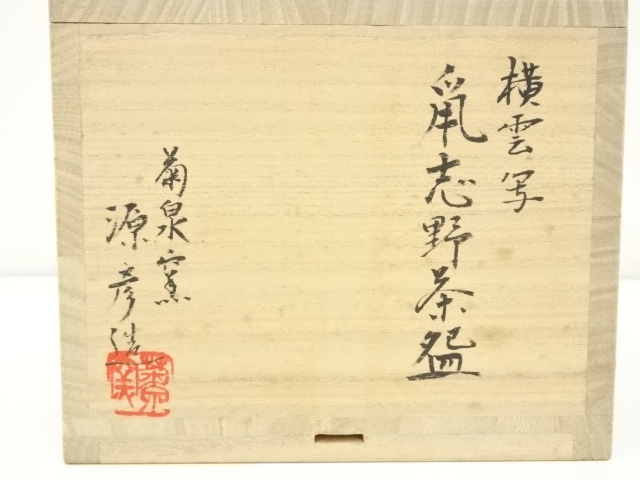 横雲写
鼡志野茶盌
菊泉窯
源彦造